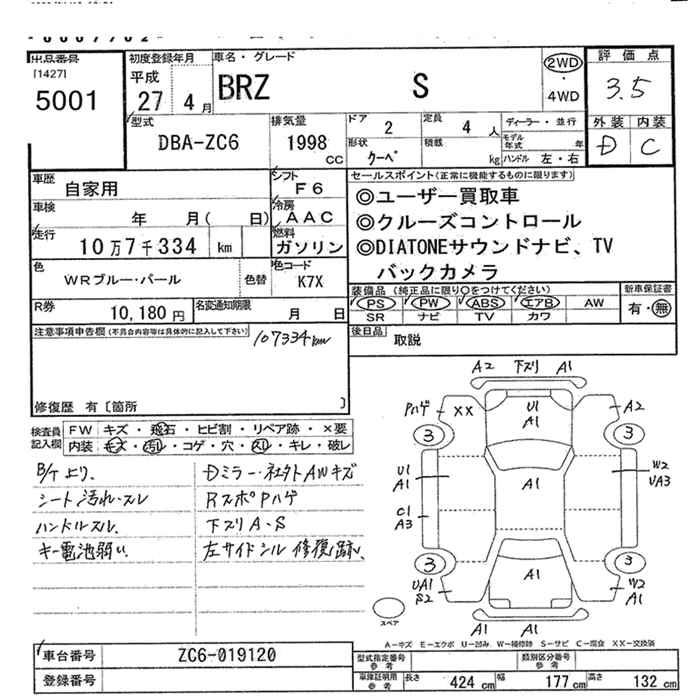 出品番号 初度登録年月 車名・グレード 評価点
[1427] 平成 2WD
5001 27 4月 BRZ S ・ 4WD 3.5
型式 排気量 ドア 2 定員 4人 ディーラー・並行 外装 内装
DBA-ZC6 1998 cc 形状 クーペ 積載 kg モデル年式 年 D C
ハンドル 左・右
車歴 自家用 シフト F6 セールスポイント(正常に機能するものに限ります)
車検 年 月( 日) 冷房 AAC ◎ユーザー買取車
走行 10万7千334 km 燃料 ガソリン ◎クルーズコントロール
◎DIATONEサウンドナビ、TV
色 WRブルー・パール 色替 色コード K7X バックカメラ
装備品(純正品に限り○をつけてください) 新車保証書
R券 10,180円 名変通知期限 月 日 PS PW ABS エアB AW 有・無
SR ナビ TV カワ
注意事項申告欄(不具合内容等は具体的に記入して下さい) 107334km 後日品 取説
修復歴 有〔箇所 〕
検査員記入欄 FW キズ・飛石・ヒビ割・リペア跡・×要
内装 キズ・汚レ・コゲ・穴・スレ・キレ・破レ
B/Tより. Dミラー・社外AWキズ
シート汚れ.スレ RスポPハゲ
ハンドルスレ. 下スリA.S
キー電池弱い. 左サイドシル修復跡.
A2 下スリ A1
Pハゲ XX U1 A1 A2
3 3
U1 A1 A1 W2 UA3
C1 A3
3 3
UA1 S2 A1 W2 A1
A1 A1
スペア
A-キズ E-エクボ U-凹み W-補修跡 S-サビ C-腐食 XX-交換済
車台番号 ZC6-019120 型式指定番号 参考 類別区分番号 参考
登録番号 車庫証明用 参考 長さ 424cm 幅 177cm 高さ 132cm